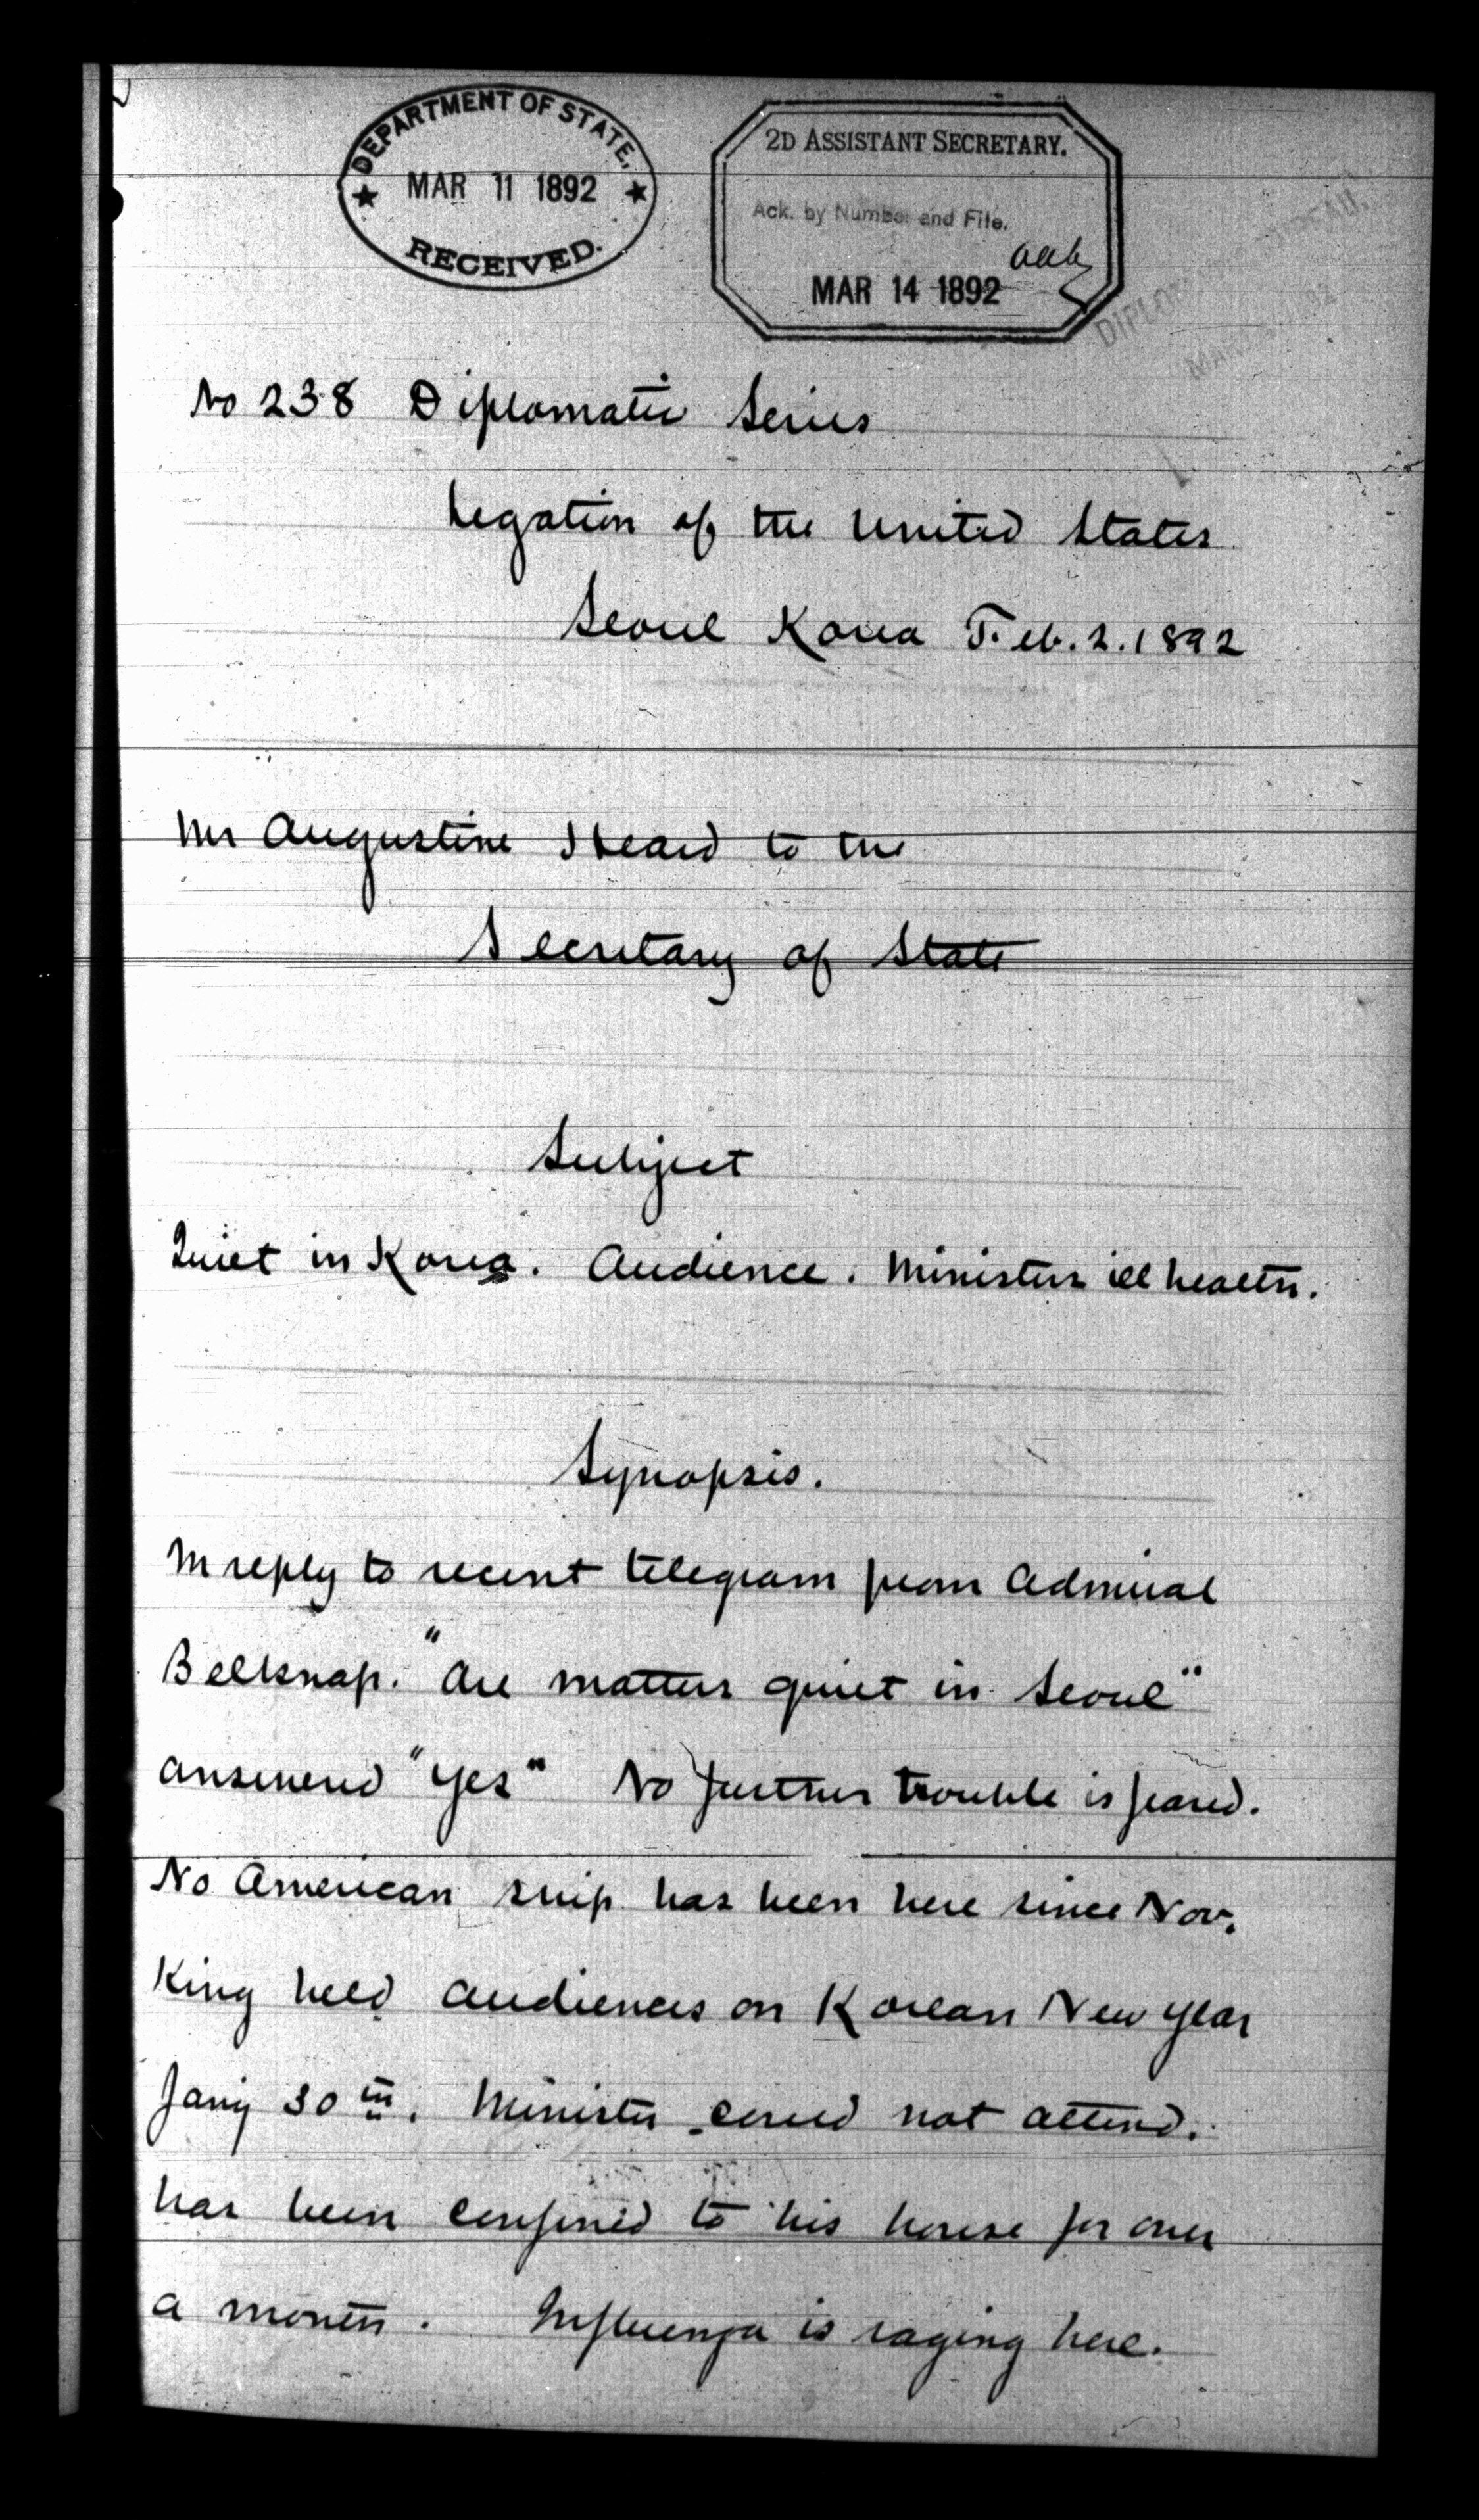 DEPARTMENT OF STATE,
MAR 11 1892
RECEIVED.
2D ASSISTANT SECRETARY.
Ack. by Number and File.
MAR 14 1892
No 238 Diplomatic Series
Legation of the United States
Seoul Korea Feb. 2. 1892
Mr Augustine Heard to the
Secretary of State
Subject
Quiet in Korea. Audience. Ministers ill health.
Synopsis.
In reply to recent telegram from Admiral
Belknap. "Are matters quiet in Seoul"
answered "Yes" No further trouble is feared.
No American ship has been here since Nov.
King held audiences on Korean New Year
Jany 30th. Minister could not attend.
has been confined to his house for over
a month. Influenza is raging here.